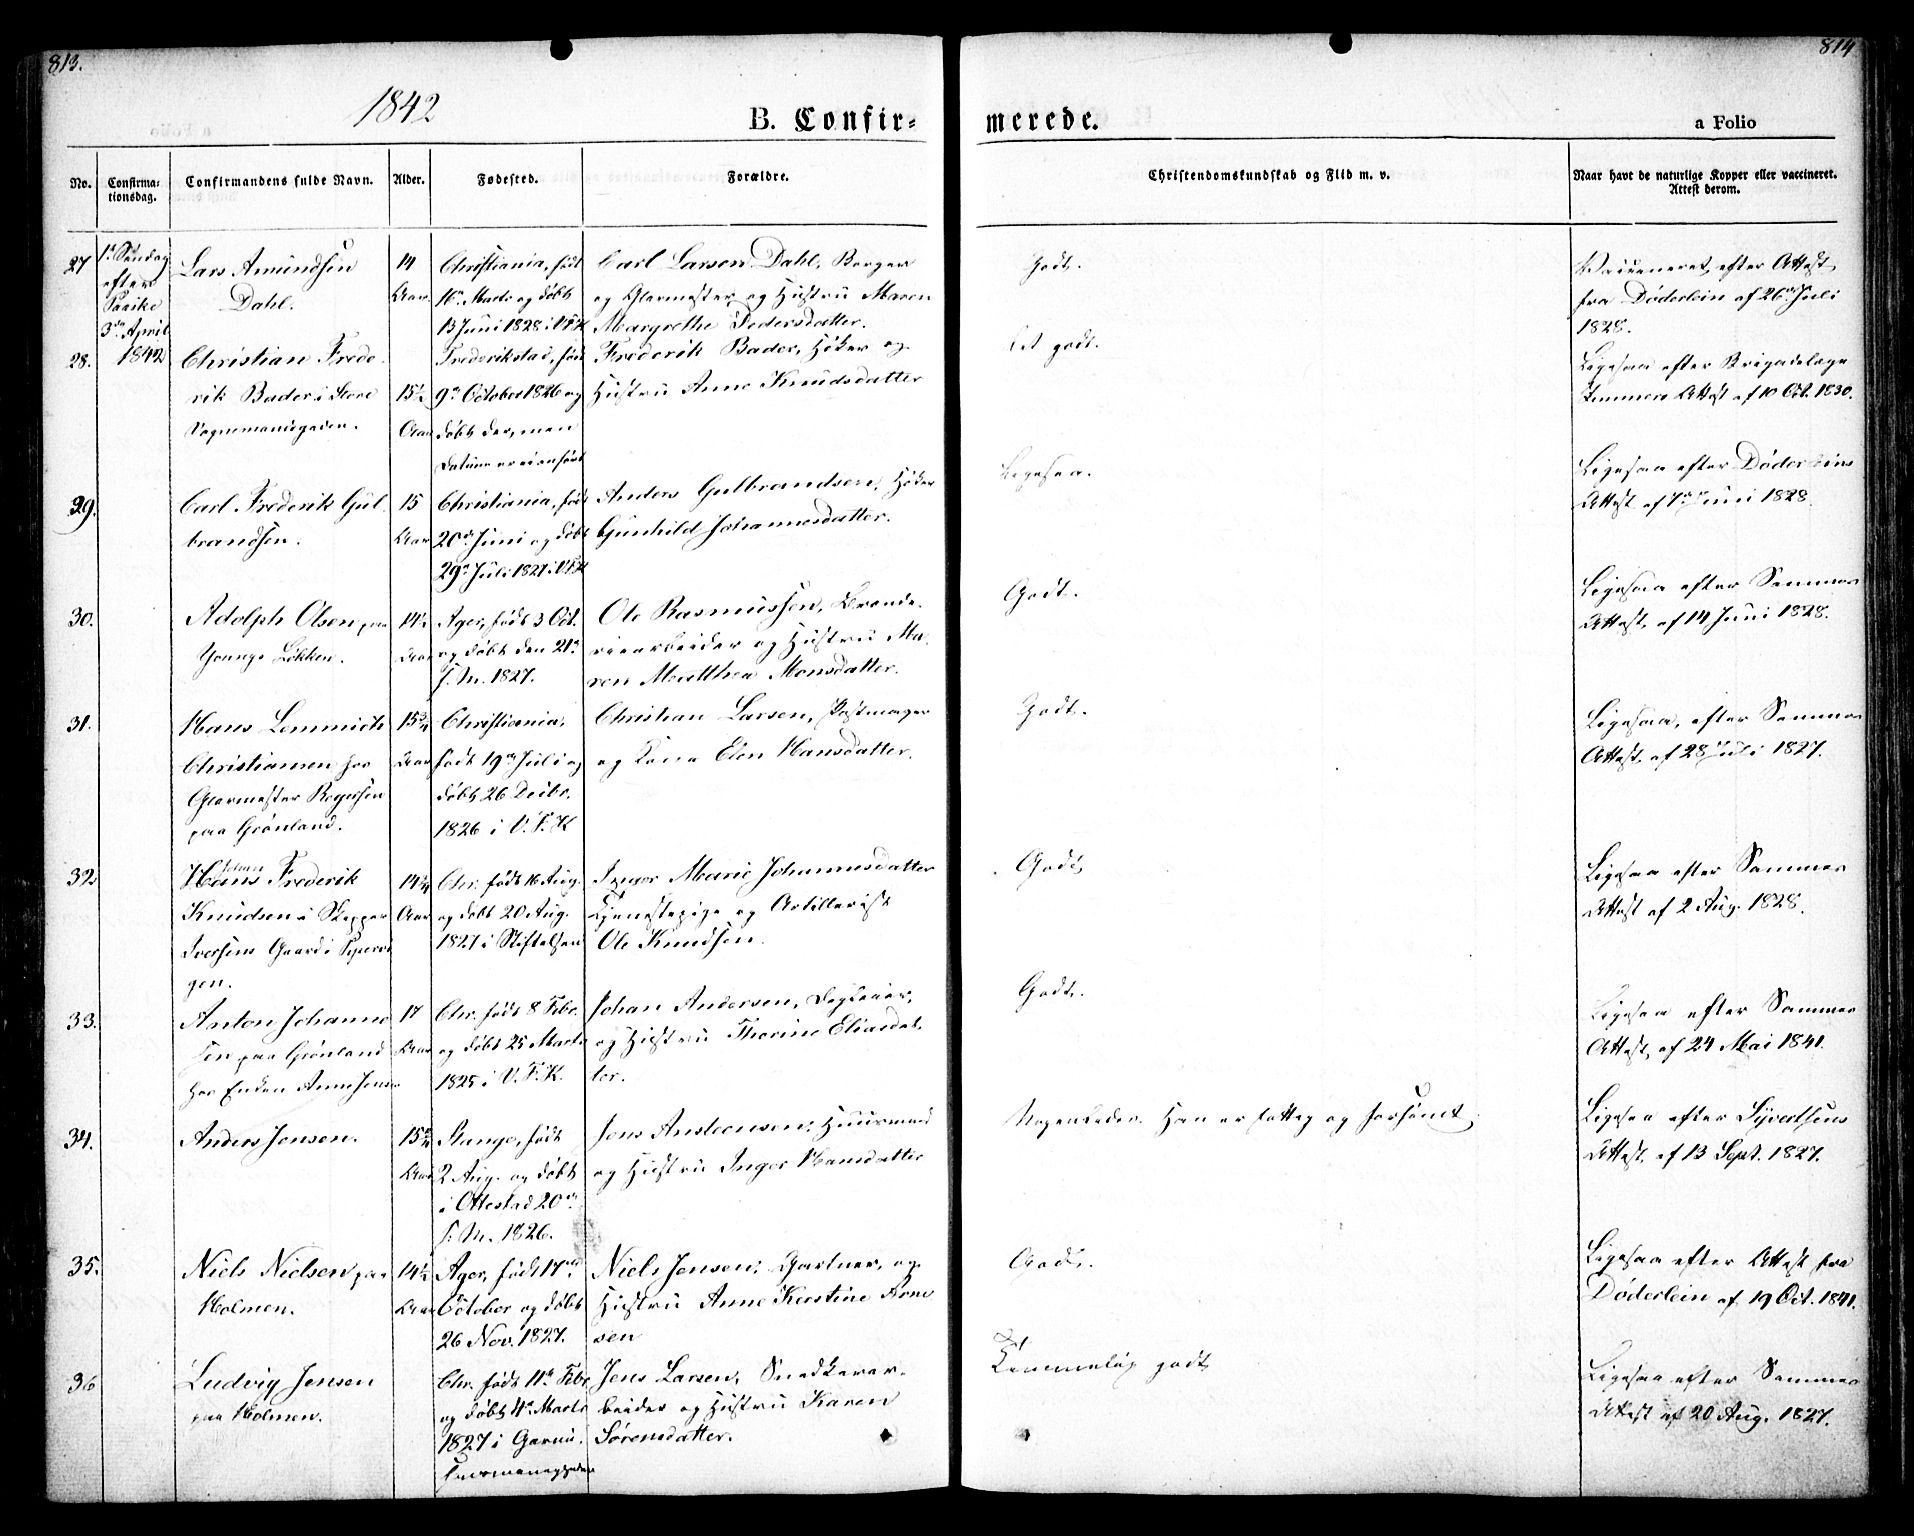 813.
814
1842
B. Confir=
merede.
a Folio
No.
Confirma=
tionsdag.
Confirmandens fulde Navn.
Alder.
Fødested.
Forældre.
Christendomskundskab og Flid m. v.
Naar havt de naturlige Kopper eller vaccineret.
Attest derom.
1ste Søndag
efter
Paaske
3die April
1842
27
Lars Amundsen
Dahl.
14
Aar
Christiania, født
16de Marts og døbt
13 Juni 1828 i V.F.K
Carl Larsen Dahl, Borger
og Glarmester og Hustru Maren
Margrethe Pedersdatter.
Godt.
Vaccineret efter Attest
fra Døderlein af 26de Juli
1828.
28.
Christian Frede
rik Bader i Store
Vognmandsgaden.
15½
Aar
Frederikstad, født
9de October 1826 og
døbt der, men
Datum er ei anført
Frederik Bader, Høker og
Hustru Anne Knudsdatter
Et godt.
Ligesaa efter Brigadelæge
Attest af 10 Oct. 1830.
29.
Carl Frederik Gul
brandsen.
15
Aar
Christiania, født
20de Juni og døbt
29de Juli 1827 i V.F.K
Anders Gulbrandsen, Høker
Gunhild Johannesdatter.
Ligesaa.
Ligesaa efter Døderleins
Attest af 7de Juni 1828.
30.
Adolph Olsen paa
Youngs Løkken.
14½
Aar
Ager, født 3 Oct.
og døbt den 21de
s. M. 1827.
Ole Rasmussen, Brænde-
riearbeider og Hustru Ma-
ren Matthea Monsdatter.
Godt.
Ligesaa efter Sammes
Attest af 14 Juni 1828.
31.
Hans Lemmich
Christiansen hos
Glarmester Bogersen
paa Grønland.
15¾
Aar
Christiania,
født 19de Juli og
døbt 26 Decbr.
1826 i V. F. K
Christian Larsen, Postmager
og Kone Elen Hansdatter.
Godt.
Ligesaa, efter Sammes
Attest af 28 Juli 1827.
32
Johan
Hans Frederik
Knudsen i Skipper
Iversens Gaard i Pipervi
gen.
14¼
Aar
Chr. født 16 Aug.
og døbt 20 Aug.
1827 i Stiftelsen
Inger Marie Johannesdatter
Tjenestepige og Artillerist
Ole Knudsen.
Godt
Ligesaa efter Sammes
Attest af 2 Aug. 1828.
33.
Anton Johanne
sen paa Grønland
hos Enken Anne Jens
17
Aar
Chr. født 8 Febr.
og døbt 25 Marts
1825 i V. F. K.
Johan Andersen, Dagleier,
og Hustru Thorine Eliasdat-
ter.
Godt.
Ligesaa efter Sammes
Attest af 24 Mai 1841.
34.
Anders Jensen.
15¾
Aar
Stange, født
2 Aug. og døbt
i Ottestad 20de
s. M. 1826.
Jens Anstensen, Huusmand
og Hustru Inger Hansdatter
Nogenledes. Han er fattig og forsømt
Ligesaa efter Syvertsens
Attest af 13 Sept. 1827.
35.
Niels Nielsen paa
Holmen.
14½
Aar
Ager, født 17de
October og døbt
26 Nov. 1827.
Niels Jensen, Gartner, og
Hustru Anne Kerstine Arne
sen
Godt.
Ligesaa efter Attest fra
Døderlein af 19 Oct. 1841.
36
Ludvig Jensen
paa Holmen.
Chr. født 11te Febr.
og døbt 4de Marts
1827 i Garni-
sonsmenigheden
Jens Larsen, Snedkerar-
beider og Hustru Karen
Sørensdatter.
Temmelig godt
Ligesaa efter Sammes
Attest af 20 Aug. 1827.